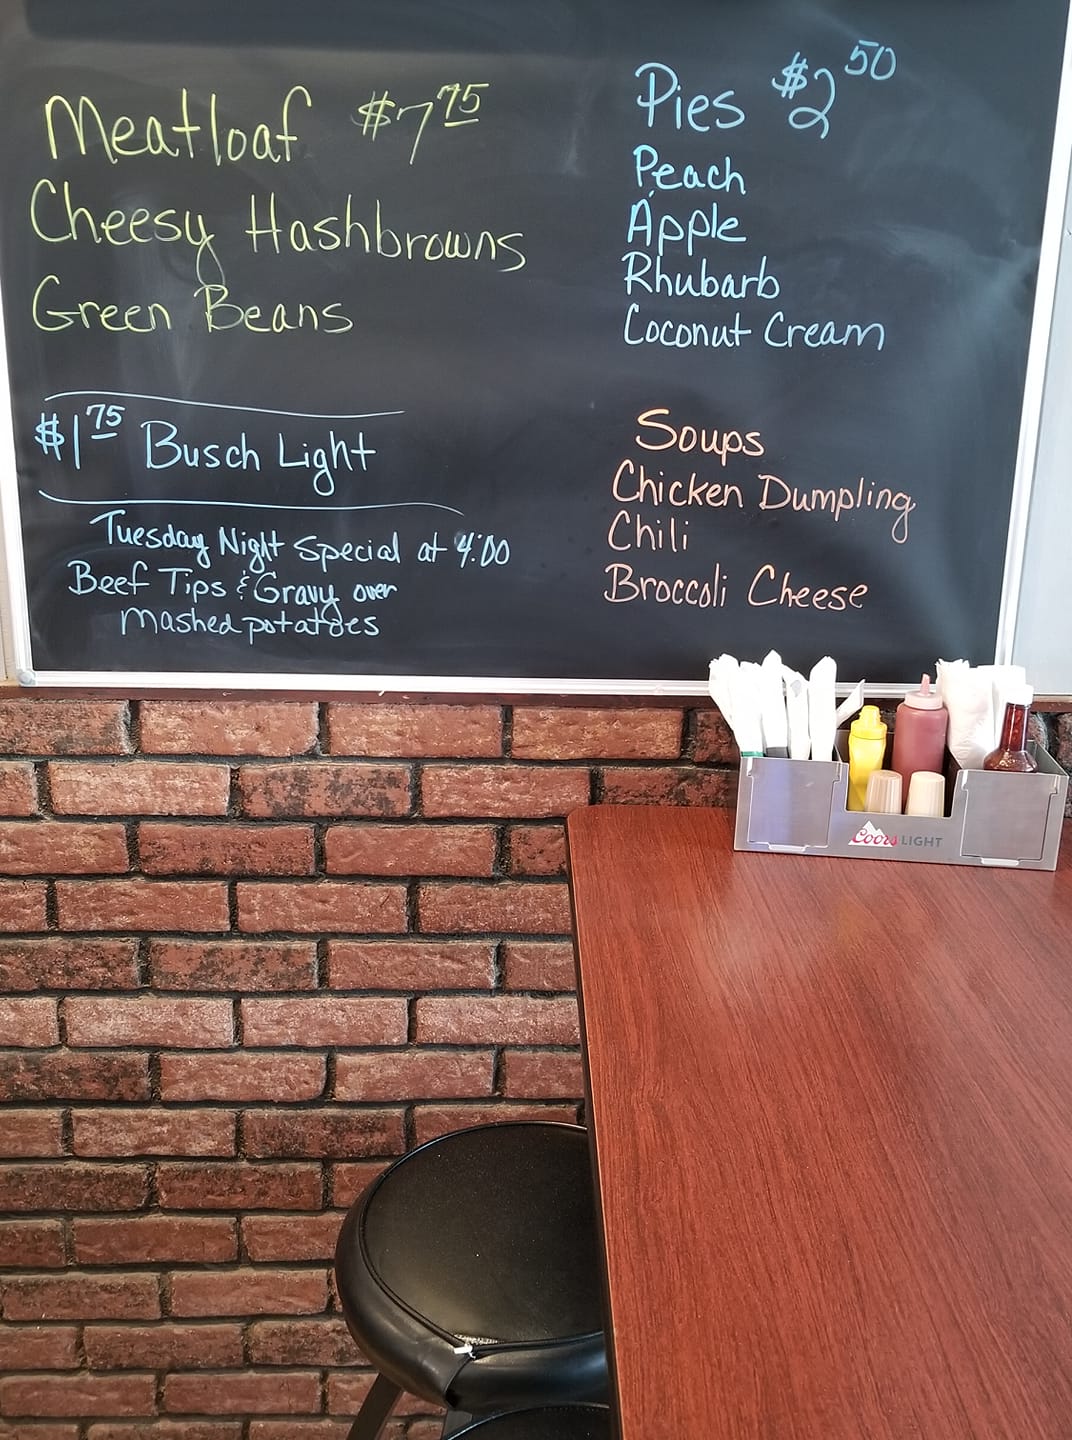 Meatloaf $7 75
Cheesy Hashbrowns
Green Beans
$1 75 Busch Light
Tuesday Night Special at 4:00
Beef Tips & Gravy over
mashed potatoes
Pies $2 50
Peach
Apple
Rhubarb
Coconut Cream
Soups
Chicken Dumpling
Chili
Broccoli Cheese
Coors LIGHT